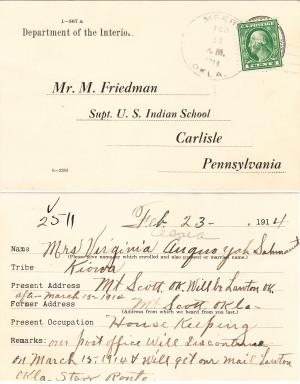 1-867 a
Department of the Interior.
MEERS
FEB
A.M.
1914
OKLA.
U.S. POSTAGE
1 CENT 1
Mr. M. Friedman
Supt. U. S. Indian School
Carlisle
Pennsylvania
2511
Feb 23- 1914
Name Mrs Virginia
(Please give name under which enrolled and also present or married name.)
Tribe Kiowa
Present Address Mt Scott, OK. Will be Lawton OK
after March 15- 1914
Former Address Mt Scott Okla-
(Address from which we heard from you last.)
Present Occupation House Keeping
Remarks: our post office will discontinue
on March 15, 1914 & will get our mail Lawton
Okla- Star Route